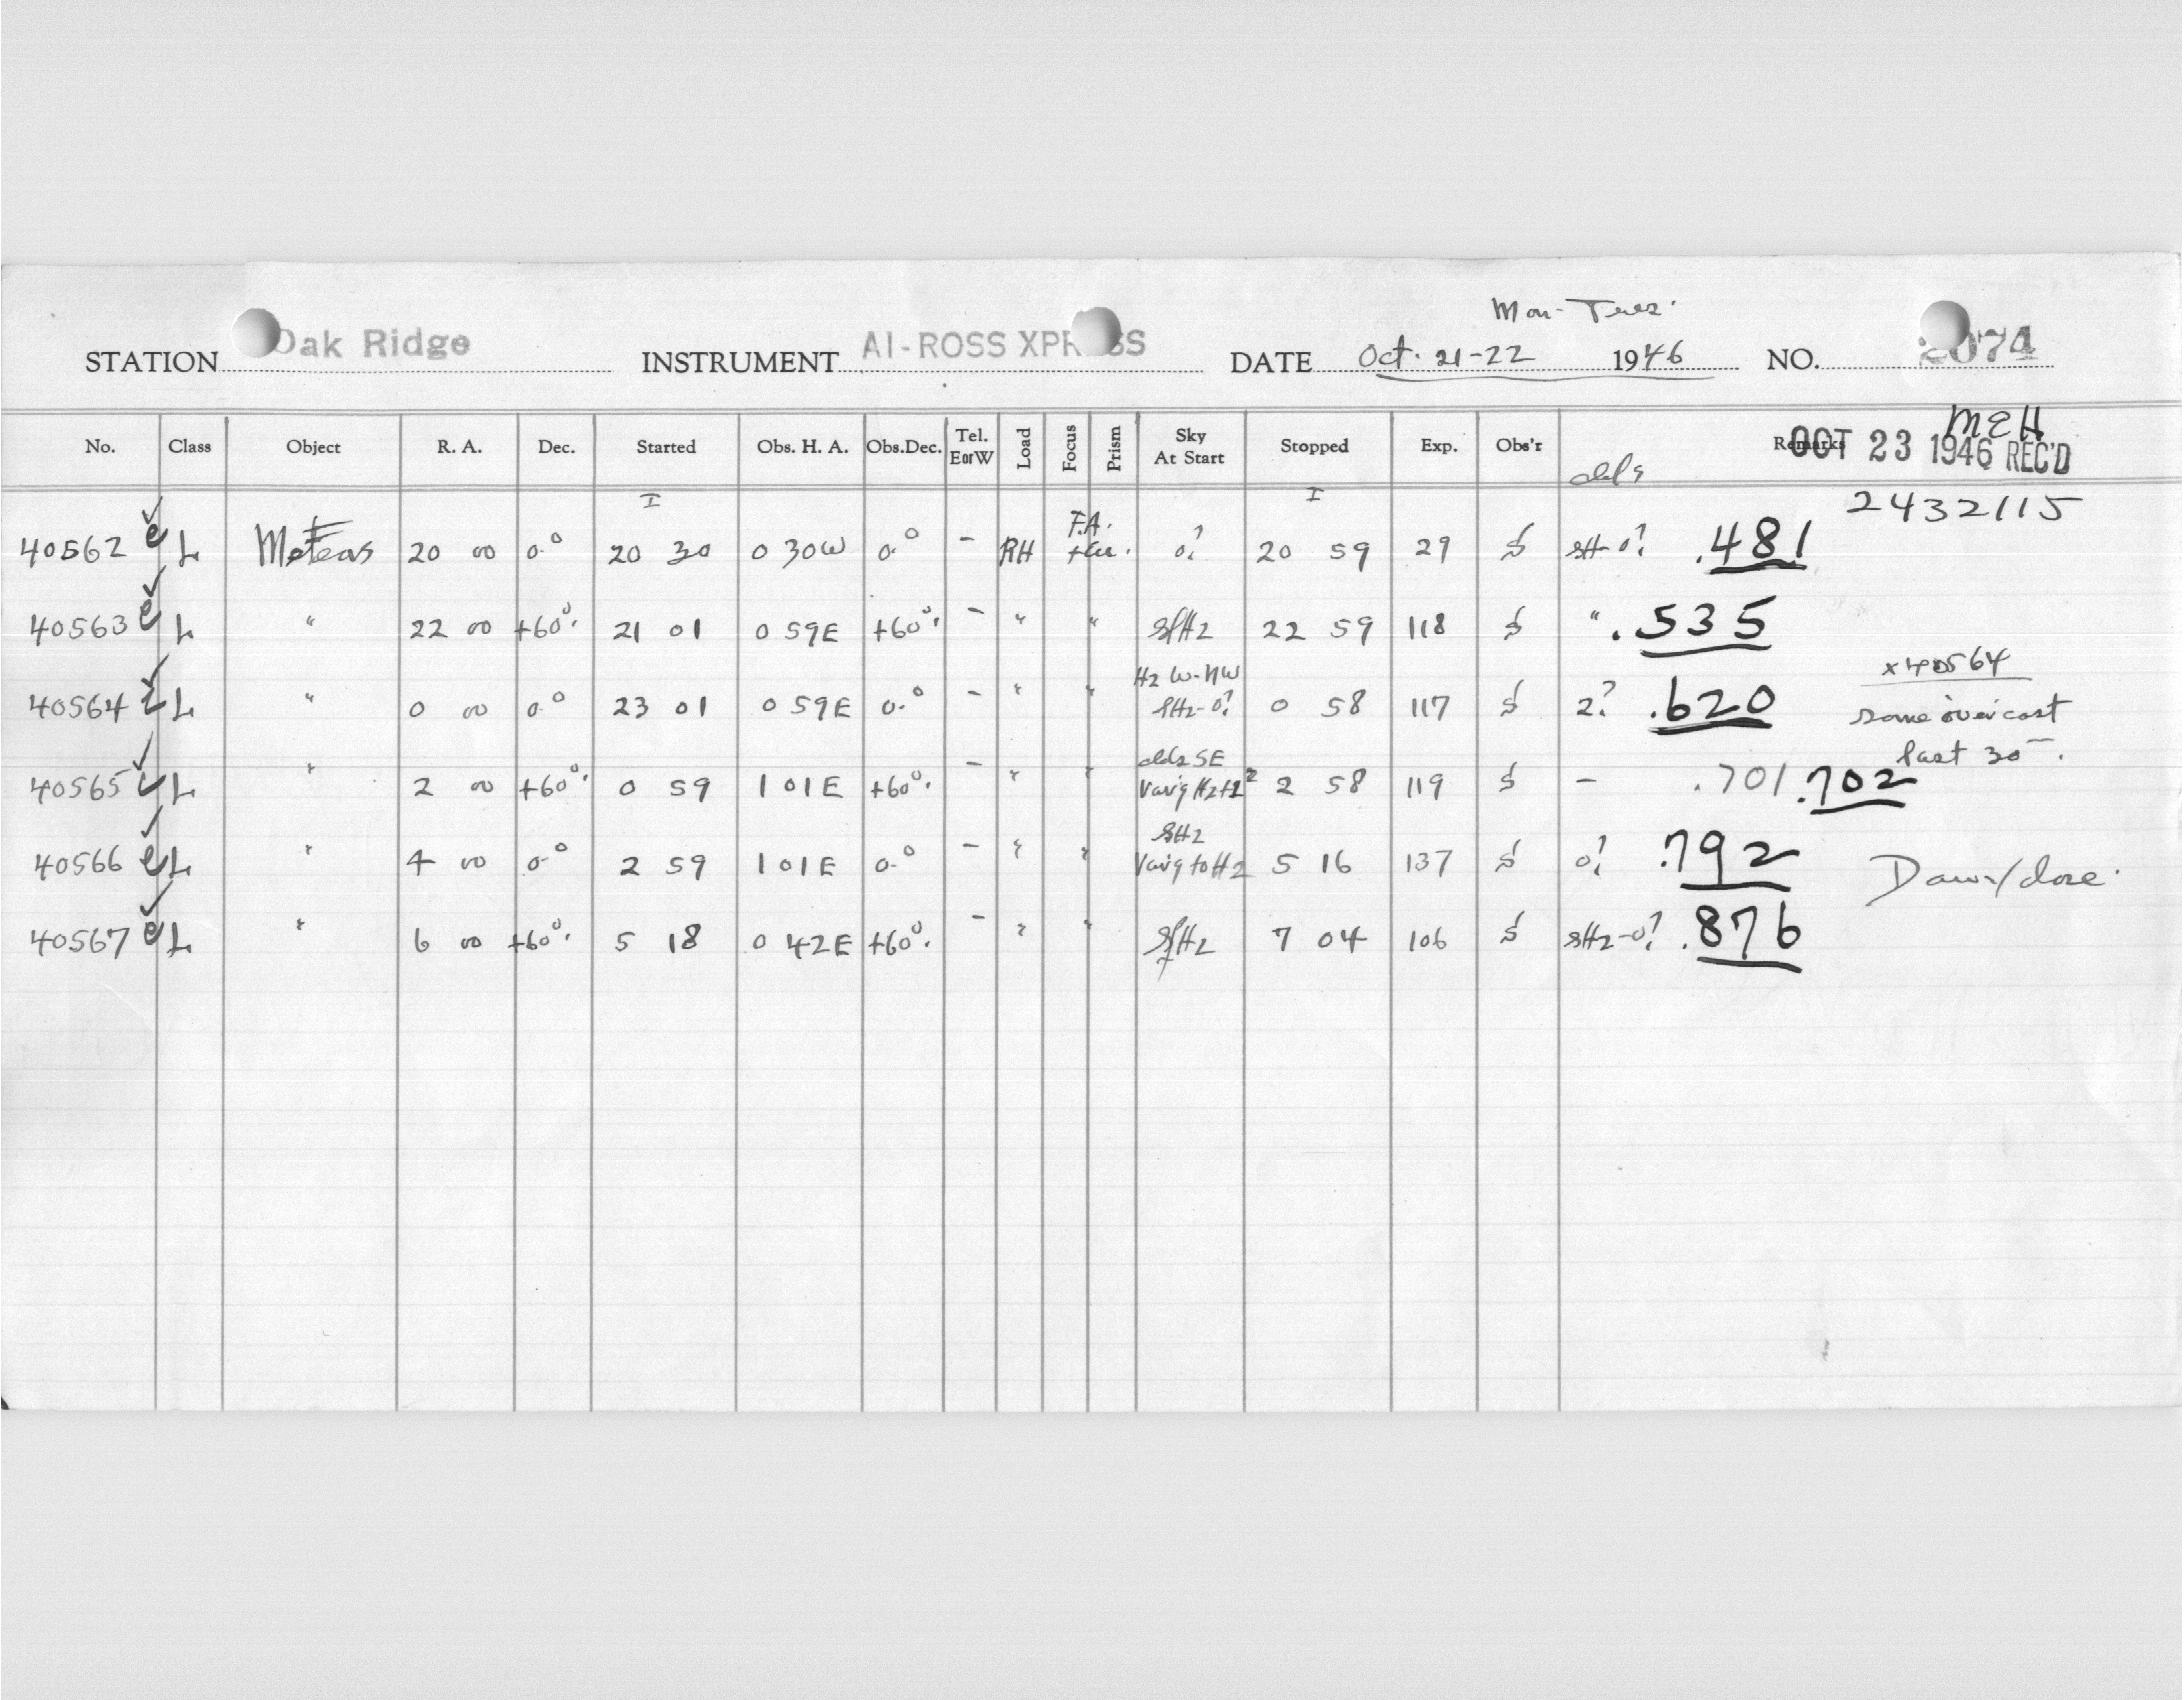 Mon-Tues.
STATION Oak Ridge INSTRUMENT AI-ROSS XPRSS DATE Oct. 21-22 1946 NO. 2074
MEH
No. Class Object R. A. Dec. Started Obs. H. A. Obs.Dec. Tel. EorW Load Focus Prism Sky At Start Stopped Exp. Obs'r Remarks OCT 23 1946 REC'D
I I 2432115
40562 e L Meteors 20 00 0.° 20 30 0 30W 0.° - RH F.A. 0? 20 59 29 S 0? .481
40563 e L " 22 00 +60°. 21 01 0 59E +60°. - " " SfHz 22 59 118 S " .535
40564 L " 0 00 0.° 23 01 0 59E 0.° - " " Hz W-NW SHz-0? 0 58 117 S 2? .620 x40564 some overcast last 30
40565 L " 2 00 +60°. 0 59 1 01E +60°. - " " clds SE 2 58 119 S - .701 .702
40566 e L " 4 00 0.° 2 59 1 01E 0.° - " " SHz Var'g to Hz 5 16 137 S 0? .792 Dawn/close.
40567 e L " 6 00 +60°. 5 18 0 42E +60°. - " " SfHz 7 04 106 S SHz-0? .876